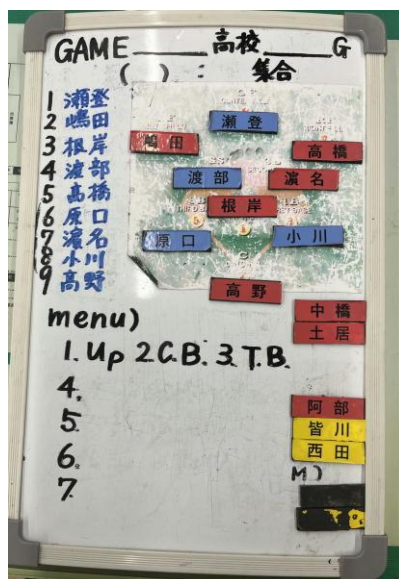 GAME____高校____G
( ) : 集合
1 瀬登
2 嶋田
3 根岸
4 渡部
5 高橋
6 原口
7 濵名
8 小川
9 高野
瀬登
嶋田
高橋
渡部
濵名
根岸
原口
小川
高野
中橋
土居
menu)
1. Up 2. C.B. 3. T.B.
4.
5.
6.
7.
阿部
皆川
西田
M)